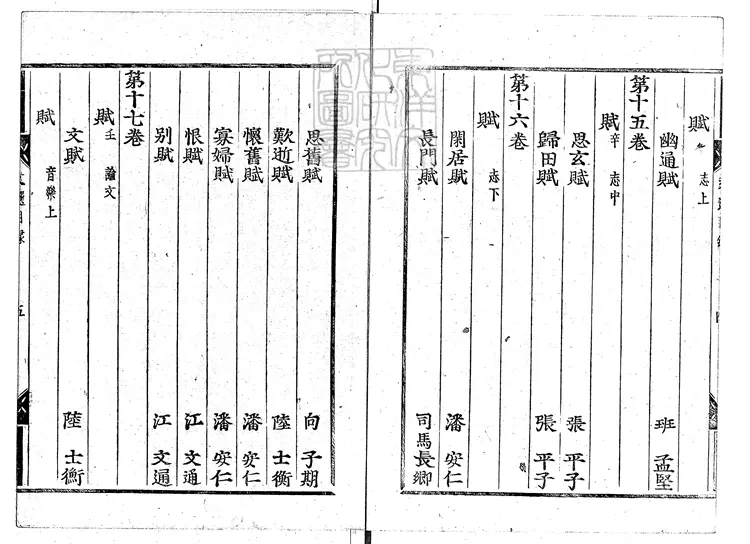 賦 志上
幽通賦 班孟堅
第十五卷
賦辛 志中
思玄賦 張平子
歸田賦 張平子
第十六卷
賦 志下
閑居賦 潘安仁
長門賦 司馬長卿
思舊賦 向子期
歎逝賦 陸士衡
懷舊賦 潘安仁
寡婦賦 潘安仁
恨賦 江文通
別賦 江文通
第十七卷
賦壬 論文
文賦 陸士衡
賦 音樂上
五